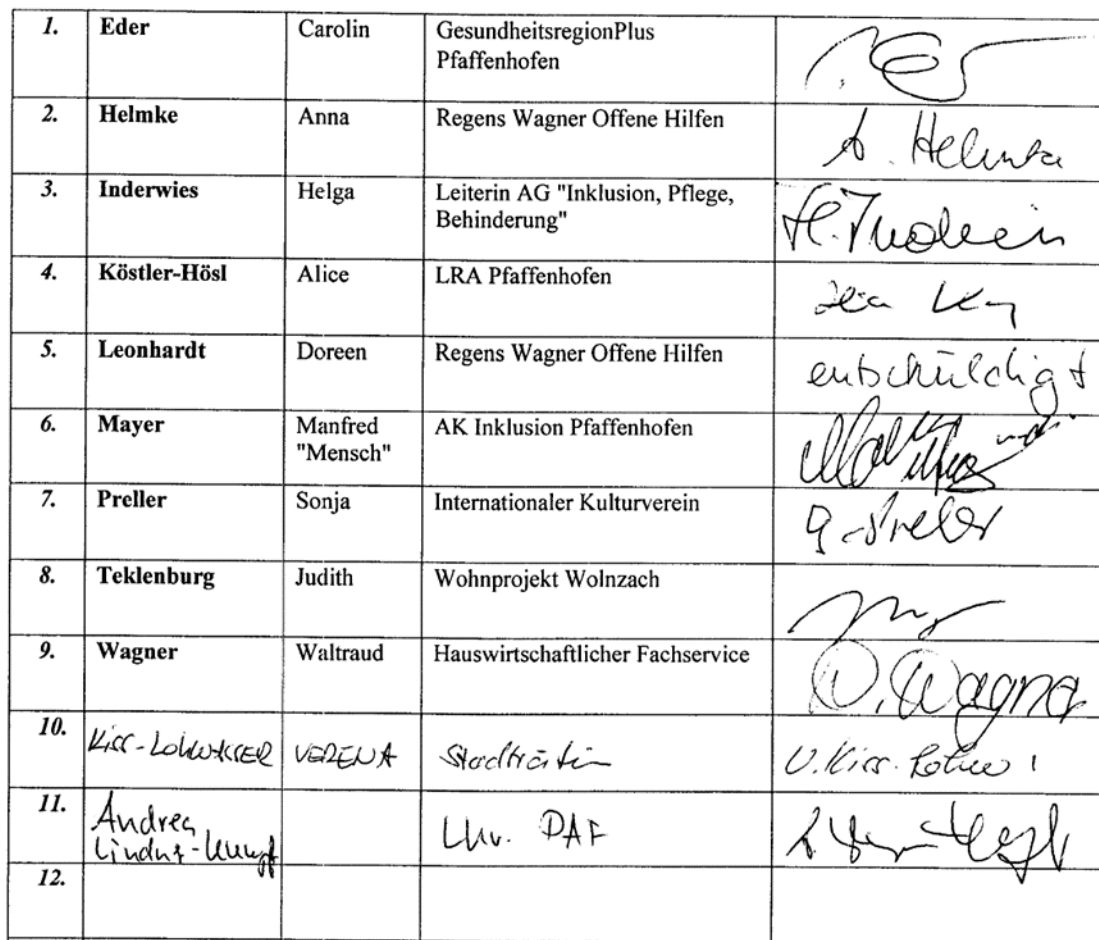 1. Eder Carolin GesundheitsregionPlus
Pfaffenhofen
2. Helmke Anna Regens Wagner Offene Hilfen A. Helmke
3. Inderwies Helga Leiterin AG "Inklusion, Pflege,
Behinderung" H.
4. Köstler-Hösl Alice LRA Pfaffenhofen
5. Leonhardt Doreen Regens Wagner Offene Hilfen entschuldigt
6. Mayer Manfred AK Inklusion Pfaffenhofen
"Mensch"
7. Preller Sonja Internationaler Kulturverein
8. Teklenburg Judith Wohnprojekt Wolnzach
9. Wagner Waltraud Hauswirtschaftlicher Fachservice W. Wagner
10. Kiss-Lohwasser VERENA Stadträtin V. Kiss-
11. Andrea
PAF
12.